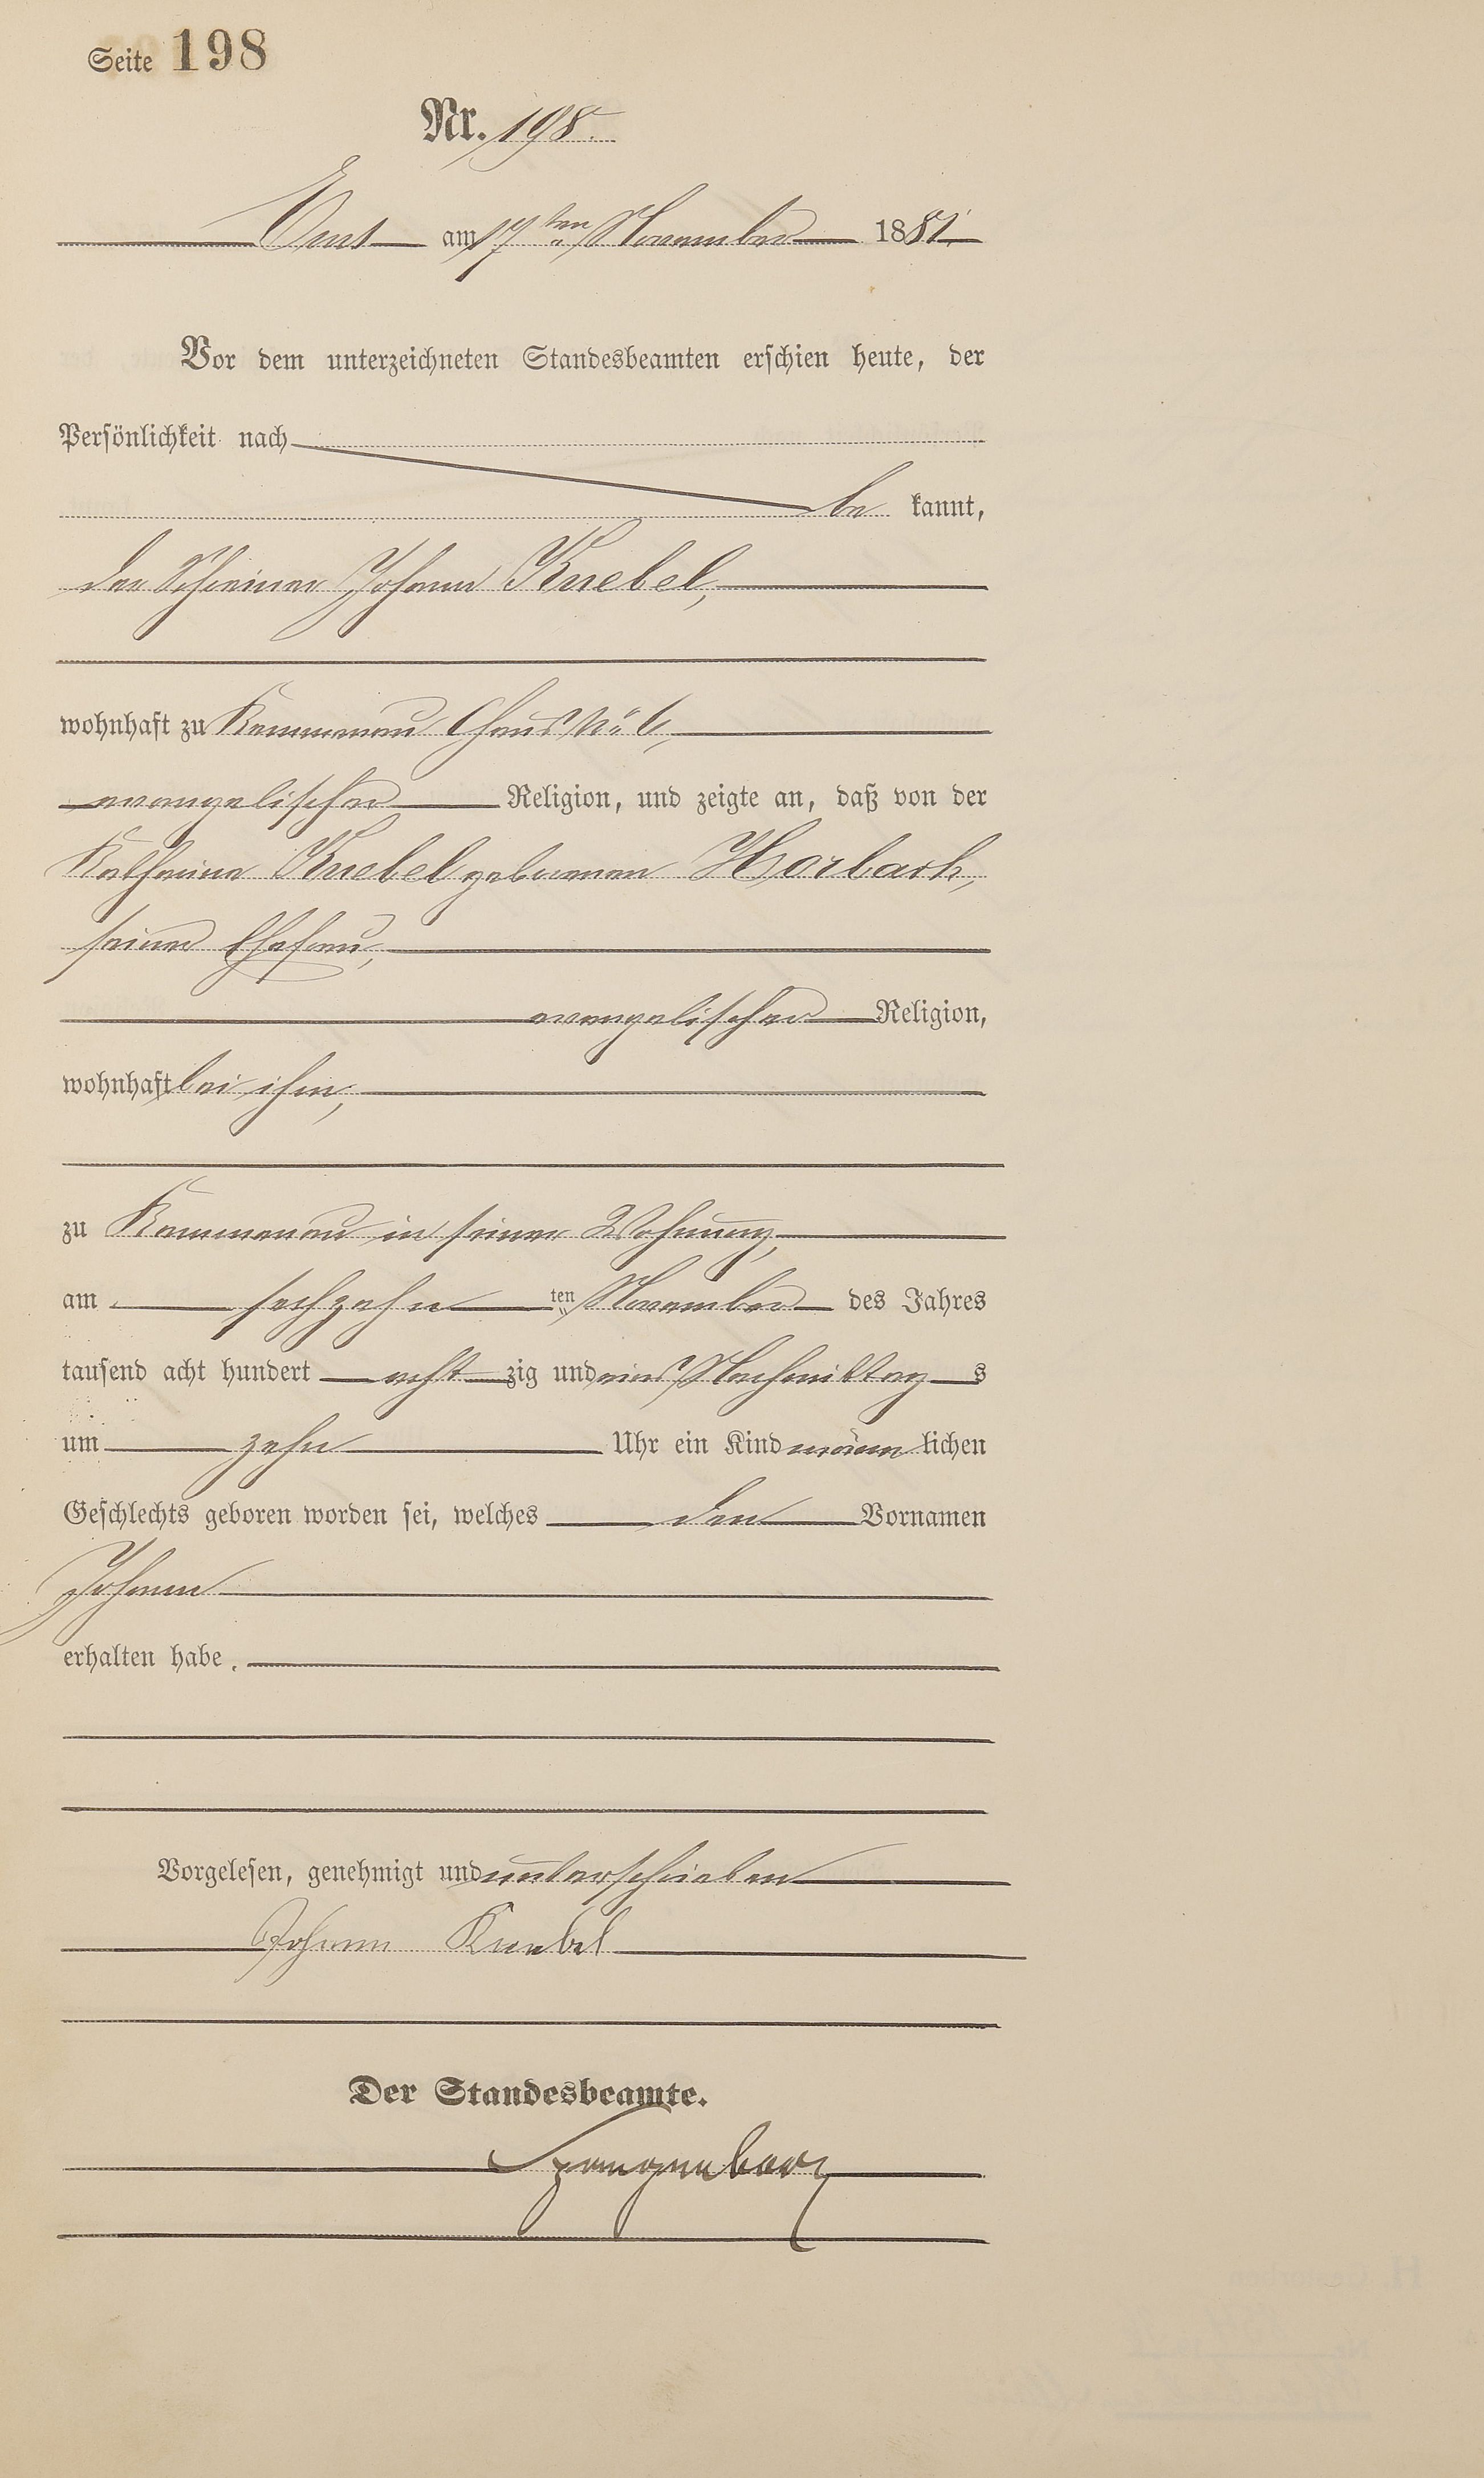 Seite 198
Nr. 198.
Ems am 17ten November 1881.
Vor dem unterzeichneten Standesbeamten erschien heute, der
Persönlichkeit nach
be kannt,
der Schreiner Johann Knebel,
wohnhaft zu Kemmenau Haus No 6,
evangelischer Religion, und zeigte an, daß von der
Katharine Knebel geborenen Horbach,
seiner Ehefrau,
evangelischer Religion,
wohnhaft bei ihm,
zu Kemmenau in seiner Wohnung,
am sechzehn ten November des Jahres
tausend acht hundert acht zig und eins Nachmittag s
um zehn Uhr ein Kind männ lichen
Geschlechts geboren worden sei, welches den Vornamen
Johann
erhalten habe.
Vorgelesen, genehmigt und unterschrieben
Johann Knebel
Der Standesbeamte.
Spangenberg